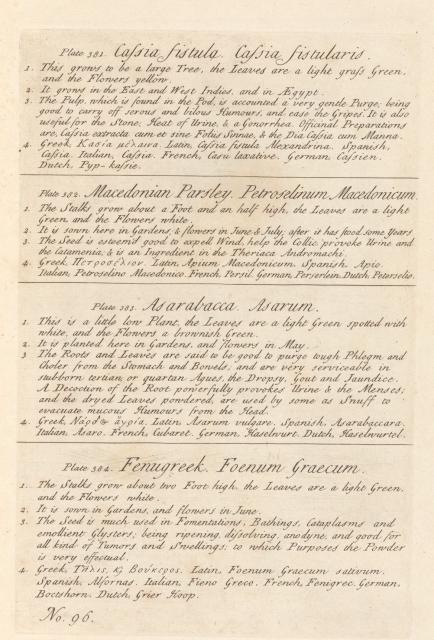 Plate 381. Cassia fistula. Cassia fistularis.
1. This grows to be a large Tree, the Leaves are a light grass Green,
and the Flowers yellow.
2. It grows in the East and West Indies, and in Ægypt.
3. The Pulp, which is found in the Pod, is accounted a very gentle Purge; being
good to carry off serous and bilous Humours, and ease the Gripes. It is also
useful for the Stone, Heat of Urine, & a Gonorrhea. Officinal Preparations
are, Cassia extracta cum et sine Foliis Sennae, & the Dia Cassia cum Manna.
4. Greek, Κασία μέλαινα. Latin, Cassia fistula Alexandrina. Spanish,
Cassia. Italian, Cassia. French, Casse laxative. German, Cassien.
Dutch, Pyp-kassie.
Plate 382. Macedonian Parsley. Petroselinum Macedonicum.
1. The Stalks grow about a Foot and an half high, the Leaves are a light
Green, and the Flowers white.
2. It is sown here in Gardens, & flowers in June & July, after it has stood some Years
3. The Seed is esteem'd good to expell Wind, help the Collic, provoke Urine and
the Catamenia; & is an Ingredient in the Theriaca Andromachi.
4. Greek, Πετροσέλινον. Latin, Apium Macedonicum. Spanish, Apio.
Italian, Petroselino Macedonico. French, Persil. German, Peterlein. Dutch, Peterselie.
Plate 383. Asarabacca. Asarum.
1. This is a little low Plant, the Leaves are a light Green spotted with
white, and the Flowers a brownish Green.
2. It is planted here in Gardens, and flowers in May.
3 The Roots and Leaves are said to be good to purge tough Phlegm and
Choler from the Stomach and Bowels; and are very serviceable in
stubborn tertian or quartan Agues, the Dropsy, Gout and Jaundice.
A Decoction of the Root powerfully provokes Urine & the Menses;
and the dryed Leaves powdered, are used by some as Snuff to
evacuate mucous Humours from the Head.
4. Greek, Νάρδος ἀγρία. Latin, Asarum vulgare. Spanish, Asarabaccara.
Italian, Asaro. French, Cabaret. German, Haselwurt. Dutch, Haselwurtel.
Plate 384. Fenugreek. Foenum Graecum.
1. The Stalks grow about two Foot high, the Leaves are a light Green,
and the Flowers white.
2. It is sown in Gardens, and flowers in June.
3. The Seed is much used in Fomentations, Bathings, Cataplasms and
emollient Glysters; being ripening, dissolving, anodyne, and good for
all kind of Tumors and Swellings; to which Purposes the Powder
is very effectual.
4. Greek, Τῆλις, ϗ Βούκερος. Latin, Foenum Graecum sativum.
Spanish, Alfornas. Italian, Fieno Greco. French, Fenigrec. German,
Bockshorn. Dutch, Grier Hoop.
No. 96.